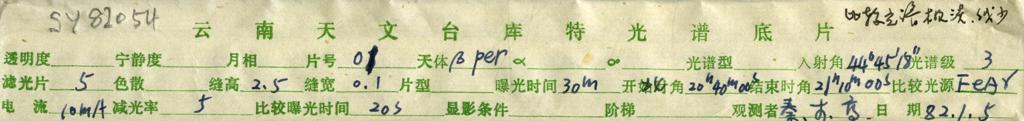 SY82054 比较光谱极淡.线少
云南天文台库特光谱底片
透明度 宁静度 月相 片号 01 天体 β per α ∞ 光谱型 入射角 44°45'18" 光谱级 3
滤光片 5 色散 缝高 2.5 缝宽 0.1 片型 曝光时间 30m 开始时角 20h40m00s 结束时角 21h10m00s 比较光源 FeAr
电流 10mA 减光率 5 比较曝光时间 20s 显影条件 阶梯 观测者 秦. 日期 82.1.5